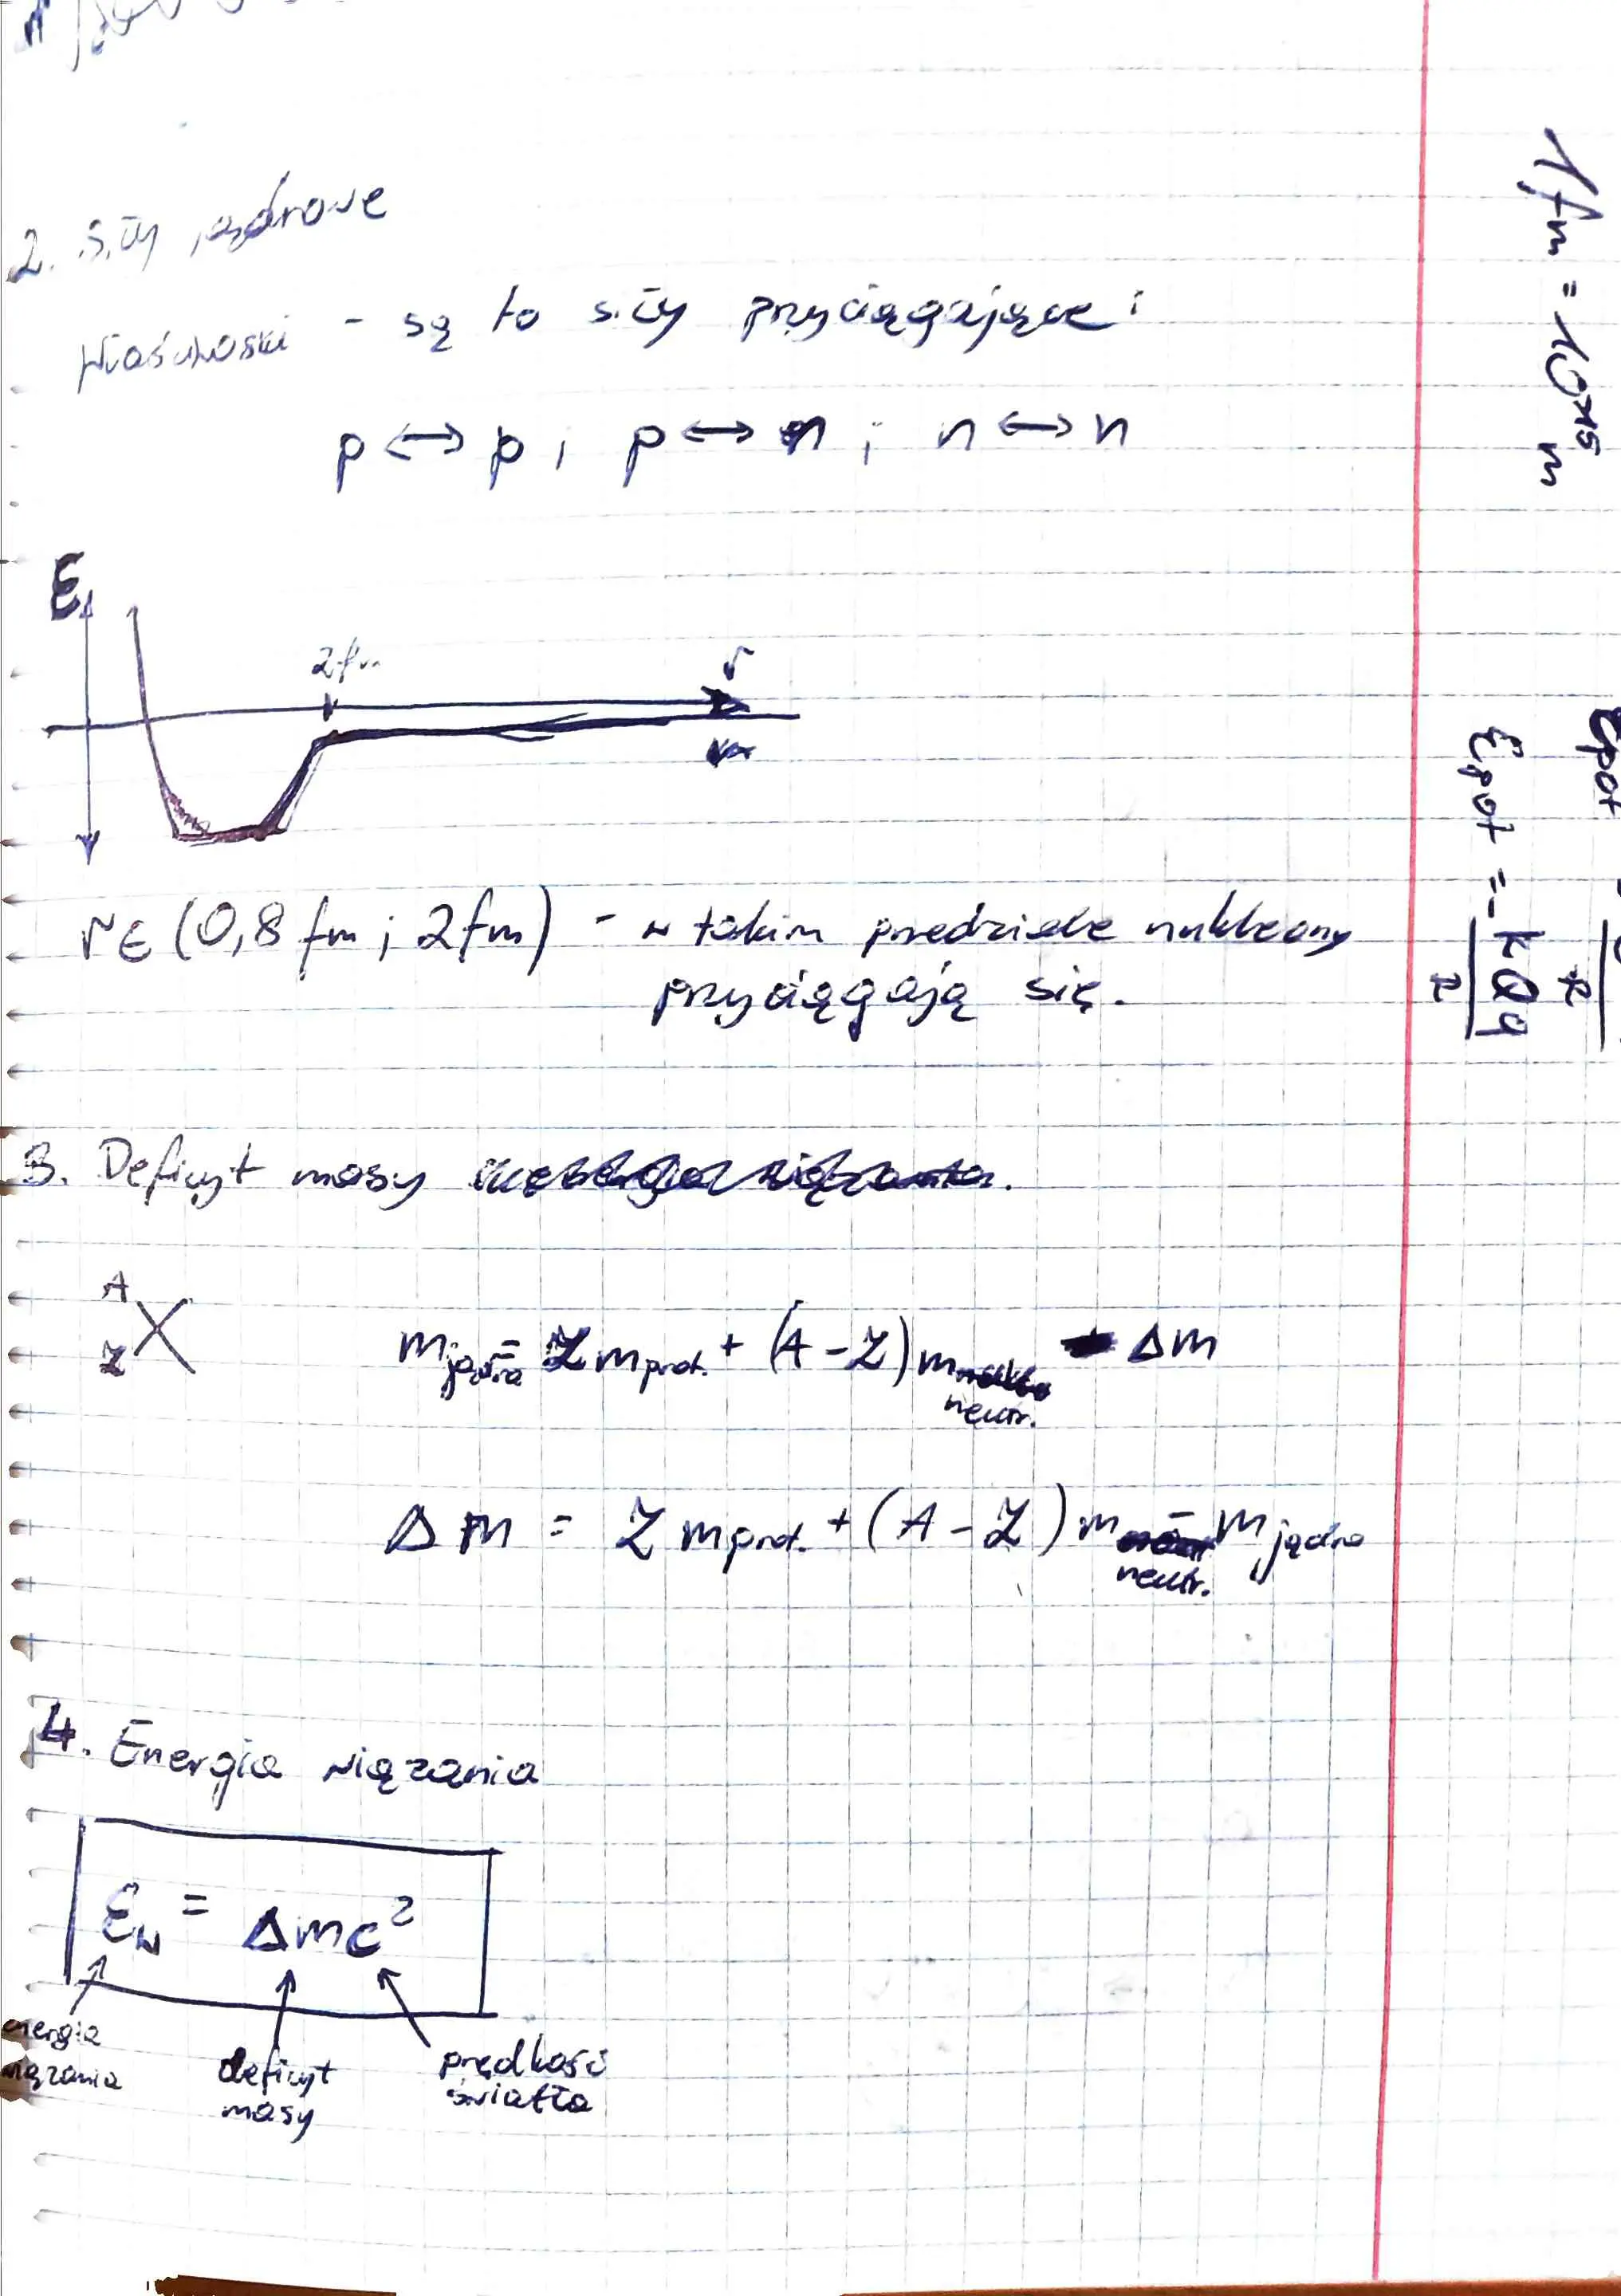 2. Siły jądrowe
właściwości - są to siły przyciągające:
p ↔ p ; p ↔ n ; n ↔ n
E
2fm
r
r ∈ (0,8 fm ; 2 fm) - w takim przedziale nukleony
przyciągają się.
3. Deficyt masy
A
Z X
m jądra = Z m prot. + (A - Z) m neutr. - Δm
Δm = Z m prot. + (A - Z) m neutr. - m jądra
4. Energia wiązania
E w = Δmc²
energia
wiązania
deficyt
masy
prędkość
światła
1fm = 10⁻¹⁵ m
Epot
Epot = - kQq / r